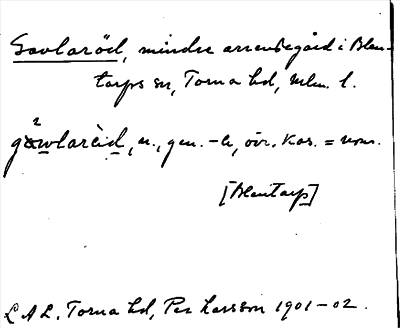 Gavlaröd, mindre arrendegård i Blen-
tarps sn, Torna hd, Mlm. l.
gåwlarèd, n., gen. -s, övr. kas. = nom.
[Blentarp]
LAL. Torna hd, Per Larsson 1901-02.